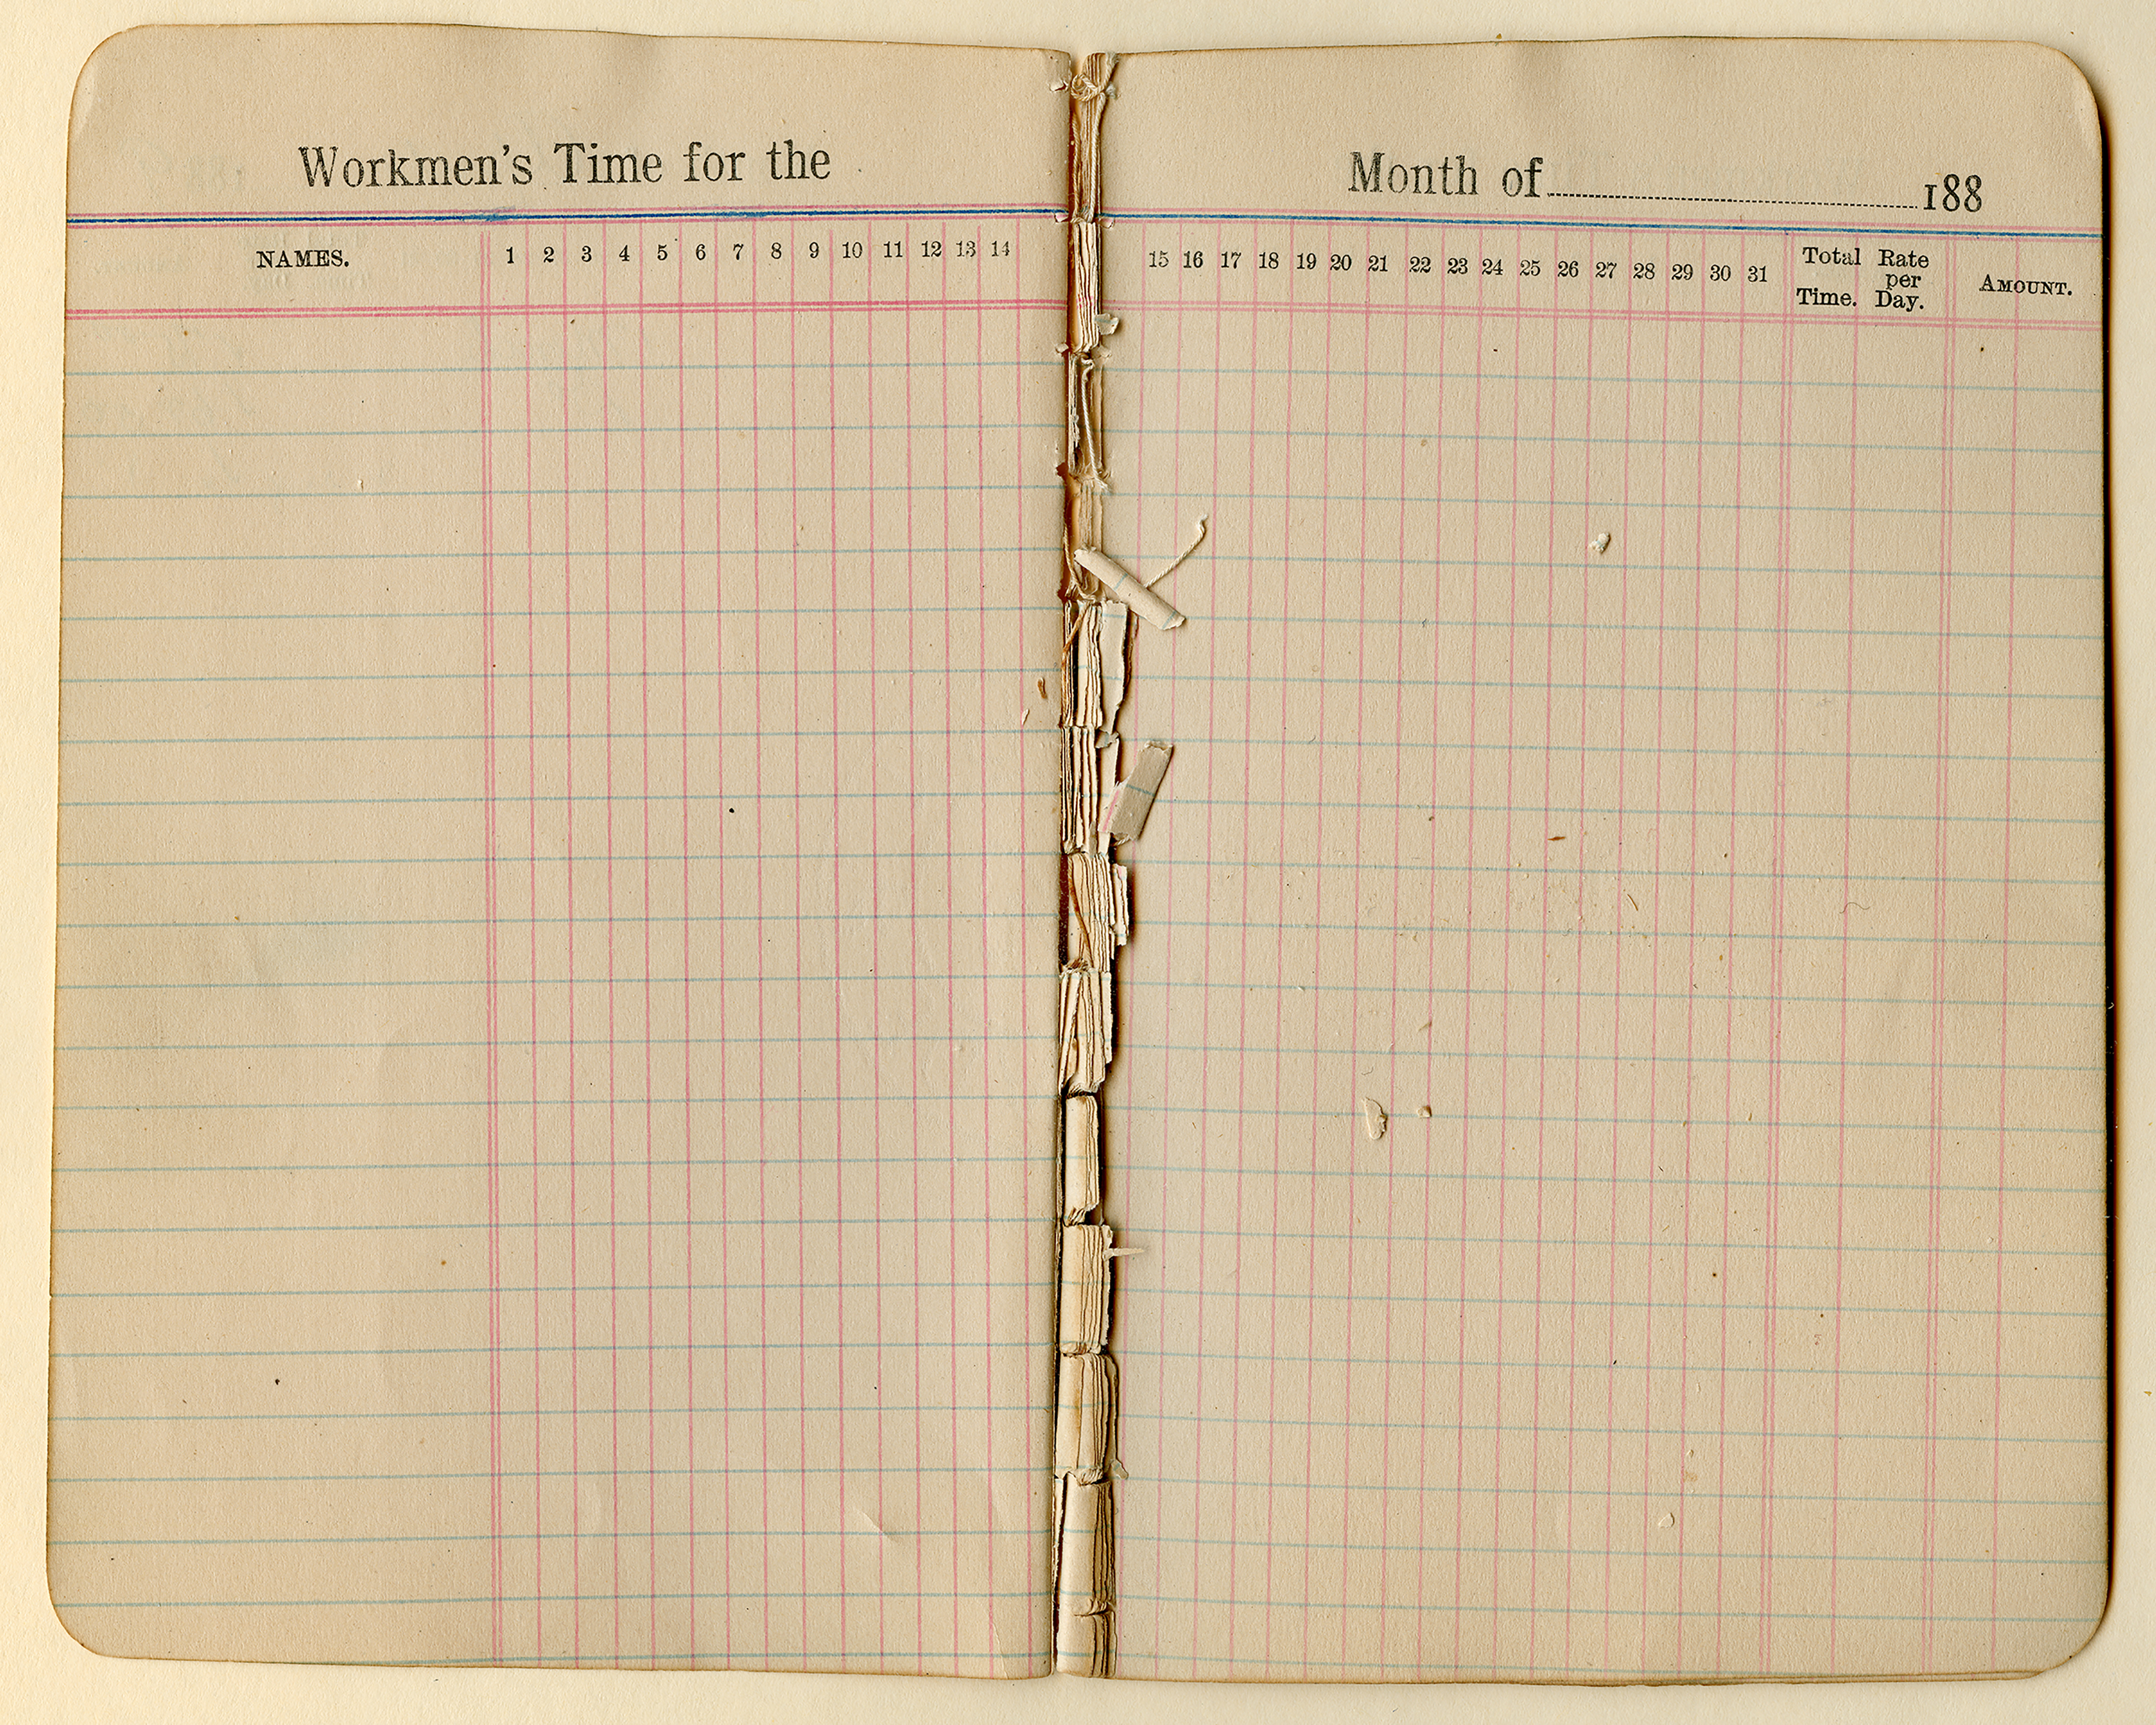 Workmen's Time for the
NAMES. 1 2 3 4 5 6 7 8 9 10 11 12 13 14
Month of 188
15 16 17 18 19 20 21 22 23 24 25 26 27 28 29 30 31 Total Time. Rate per Day. AMOUNT.